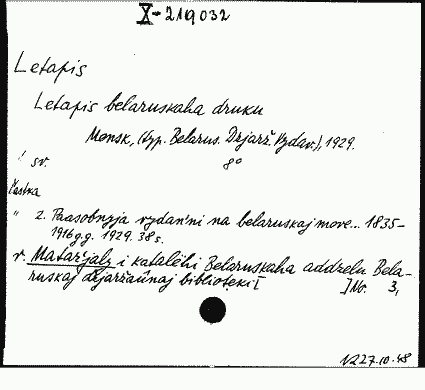 X-219032
Letapis
Letapis belaruskaha druku
Mensk, (typ. Belarus. Dzjarž. Vydav.), 1929.
sv. 8°
častka
" 2. Paasobnyja vydan'ni na belaruskaj move... 1835-
1916 g.g. 1929. 38 s.
v. Matar'jaly i katalëhi Belaruskaha addzelu Bela-
ruskaj dzjaržaŭnaj bibliotėki I ] No. 3,
27.10.48